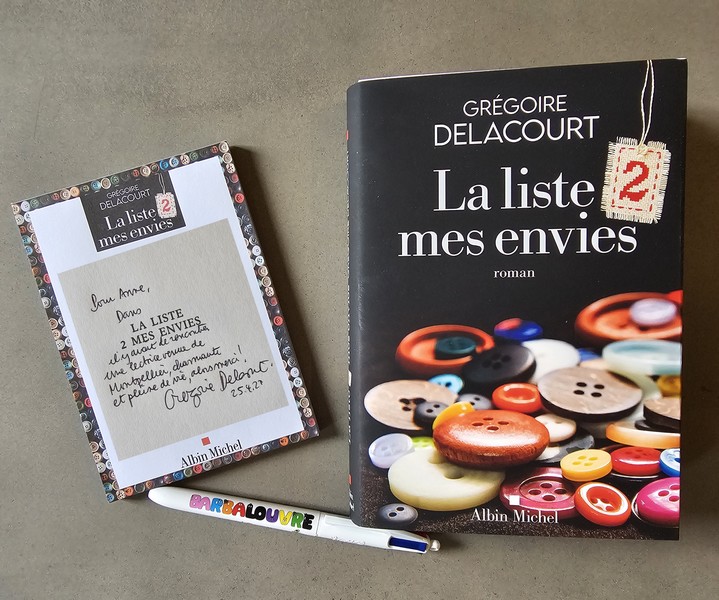 GRÉGOIRE
DELACOURT
La liste 2
mes envies
Pour Anne,
Dans
LA LISTE
2 MES ENVIES
il y avait de rencontrer
une lectrice venue de
Montpellier, charmante
et pleine de vie, alors merci !
Grégoire Delacourt.
Albin Michel
BARBALOUVRE
GRÉGOIRE
DELACOURT
La liste 2
mes envies
roman
Albin Michel